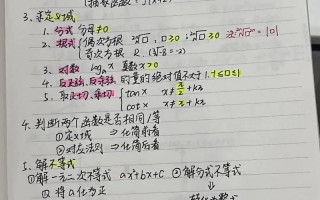 3. 求定义域
1. 分式 分母≠0
2. 根式 { 偶次方根 □≥0
奇次方根 R (∛-8 = -2)
3. 对数 logₐx 真数x>0
4. 反正弦、反余弦 的量的绝对值不大于1. -1≤□≤1
5. 取正切、余切 { tan x x≠π/2+kπ
cot x x≠kπ
4. 判断两个函数是否相同/等
①定义域 ⇒ 化简前看
②对应法则 ⇒ 化简后看
5. 解不等式
①解一元二次不等式 ax²+bx+c ②解分式不等式
① 将a化为正